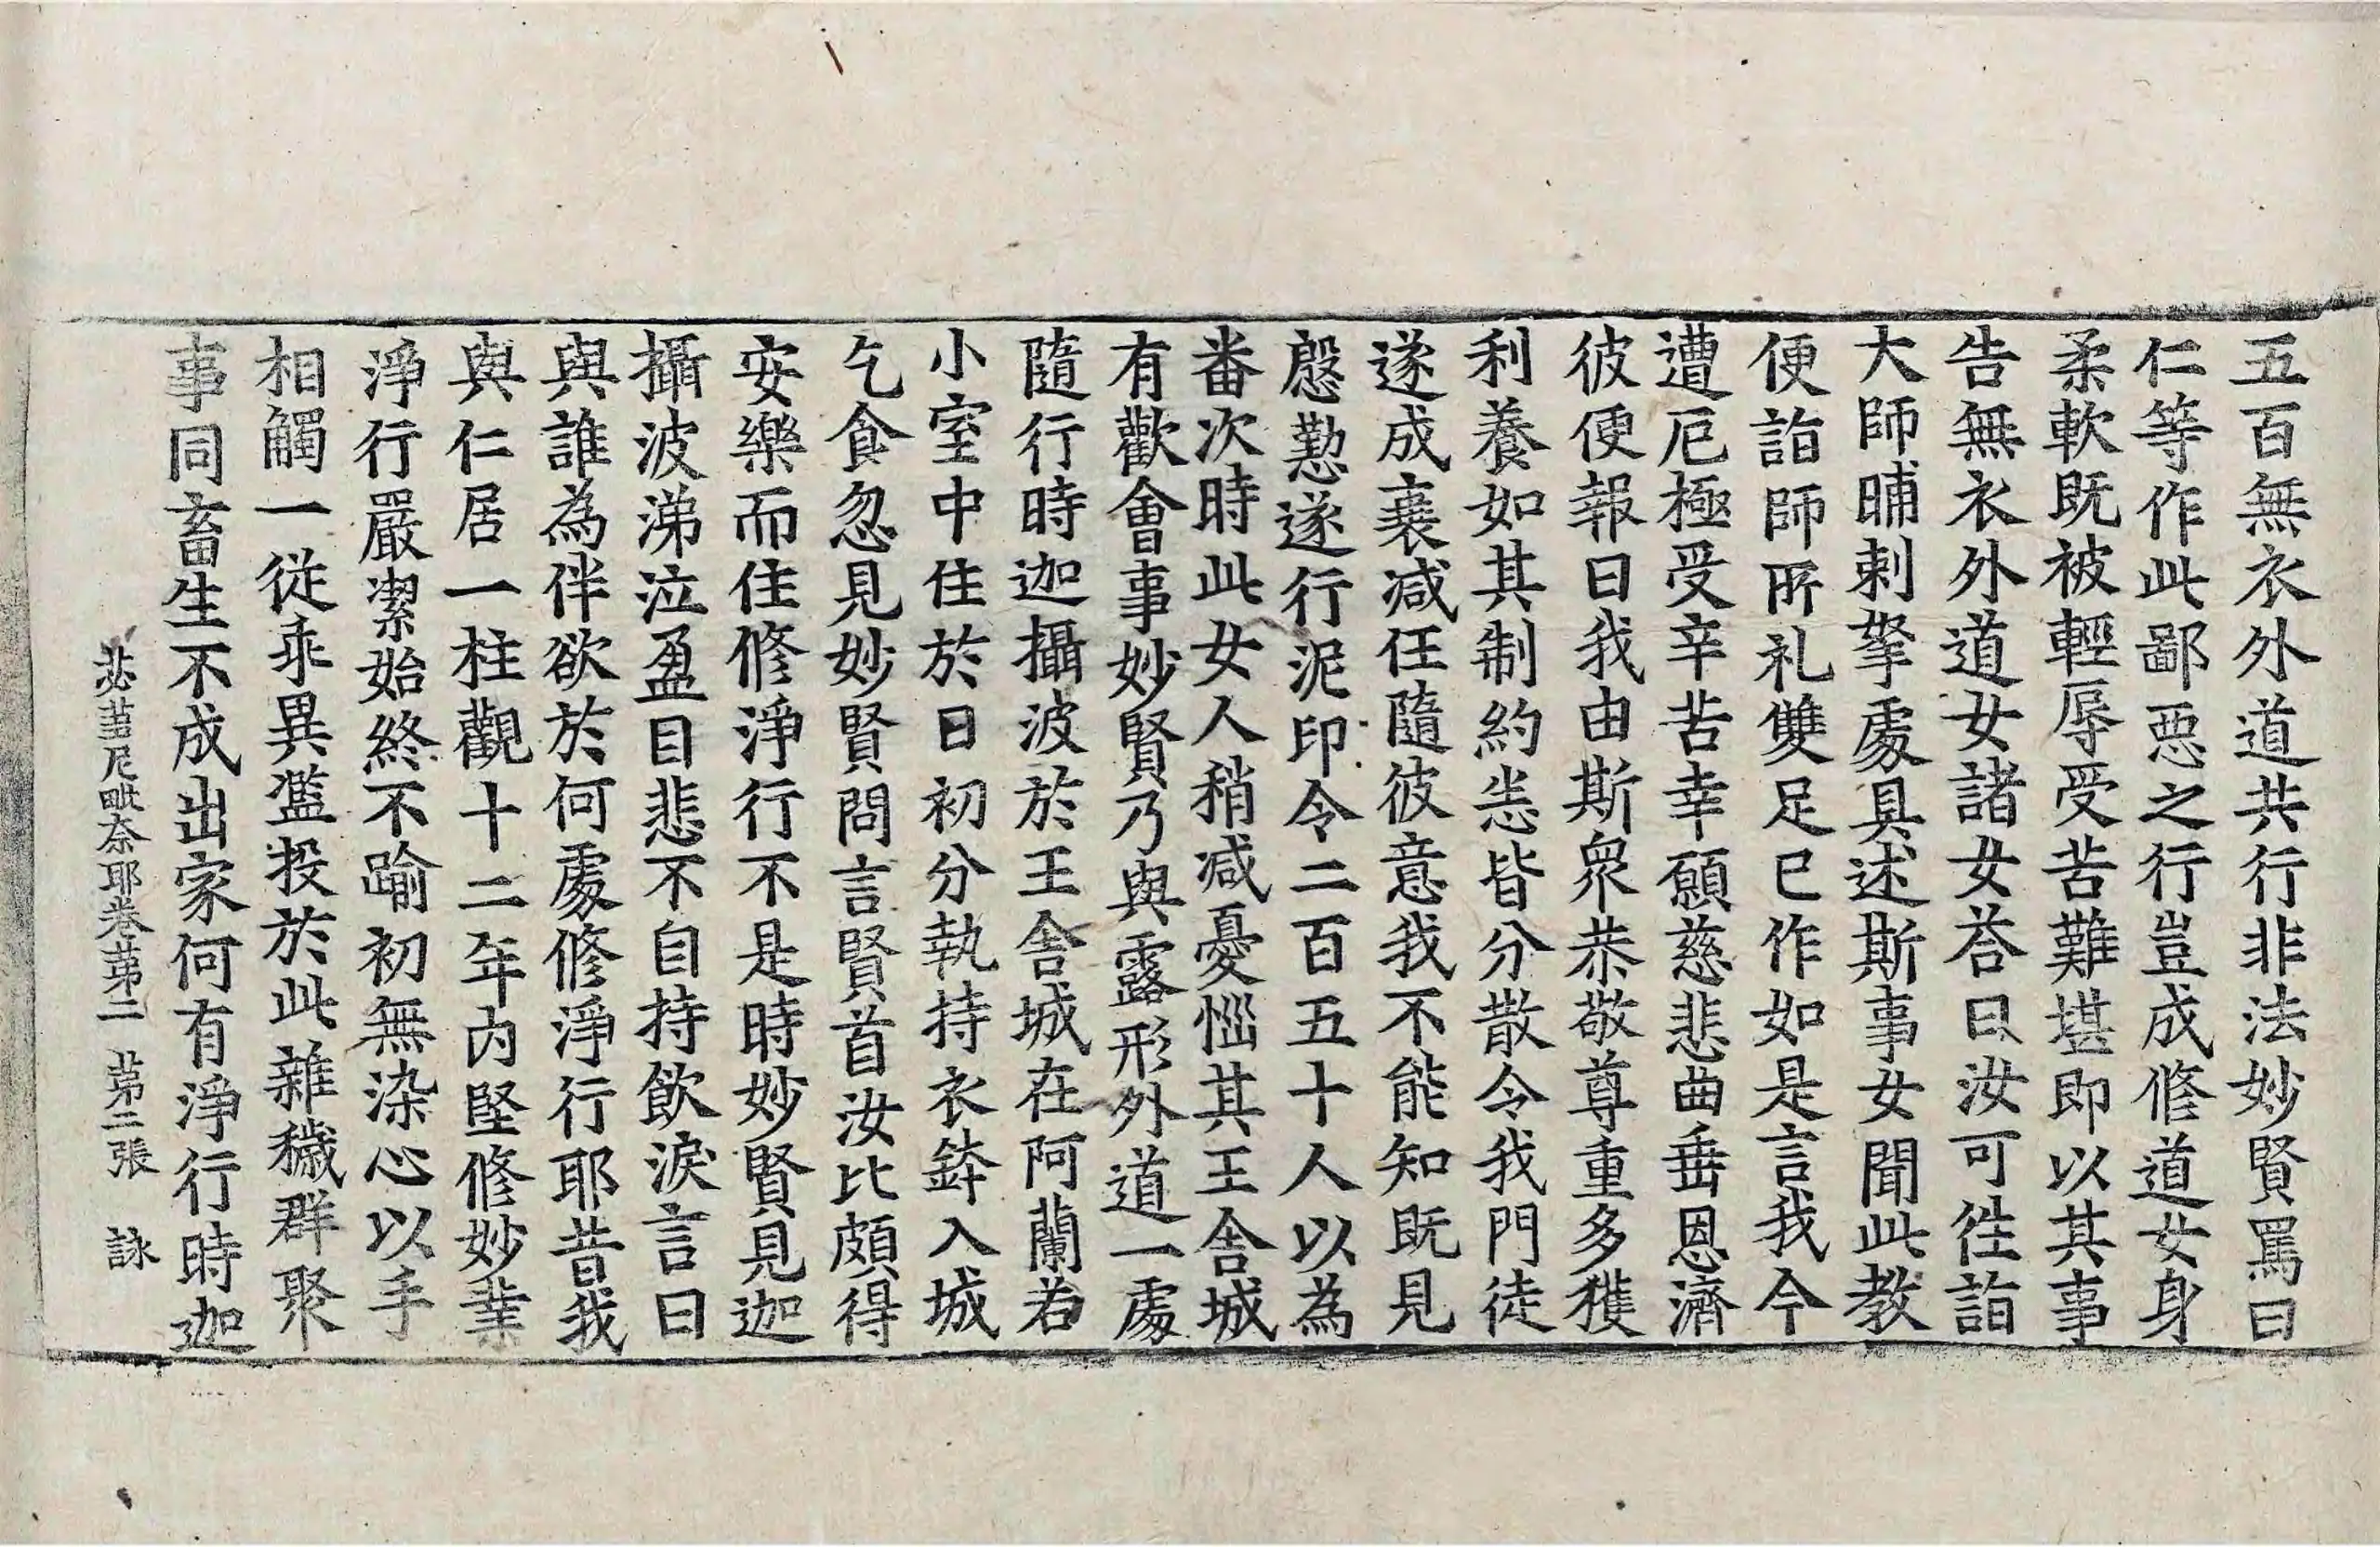 五百無衣外道共行非法妙賢罵曰
仁等作此鄙惡之行豈成修道女身
柔軟既被輕辱受苦難堪即以其事
告無衣外道女諸女荅曰汝可徃詣
大師晡剌拏處具述斯事女聞此教
便詣師所礼雙足已作如是言我今
遭厄極受辛苦幸願慈悲曲垂恩濟
彼便報曰我由斯衆恭敬尊重多獲
利養如其制約恙皆分散令我門徒
遂成衰減任隨彼意我不能知既見
慇懃遂行泥印令二百五十人以為
番次時此女人稍減憂惱其王舍城
有歡會事妙賢乃與露形外道一處
隨行時迦攝波於王舍城在阿蘭若
小室中住於日初分執持衣鉢入城
乞食忽見妙賢問言賢首汝比頗得
安樂而住修淨行不是時妙賢見迦
攝波涕泣盈目悲不自持飲淚言曰
與誰為伴欲於何處修淨行耶昔我
與仁居一柱觀十二年內堅修妙業
淨行嚴潔始終不踰初無染心以手
相觸一從乖異濫投於此雜穢群聚
事同畜生不成出家何有淨行時迦
苾蒭尼毗奈耶卷苐二 苐二張 詠